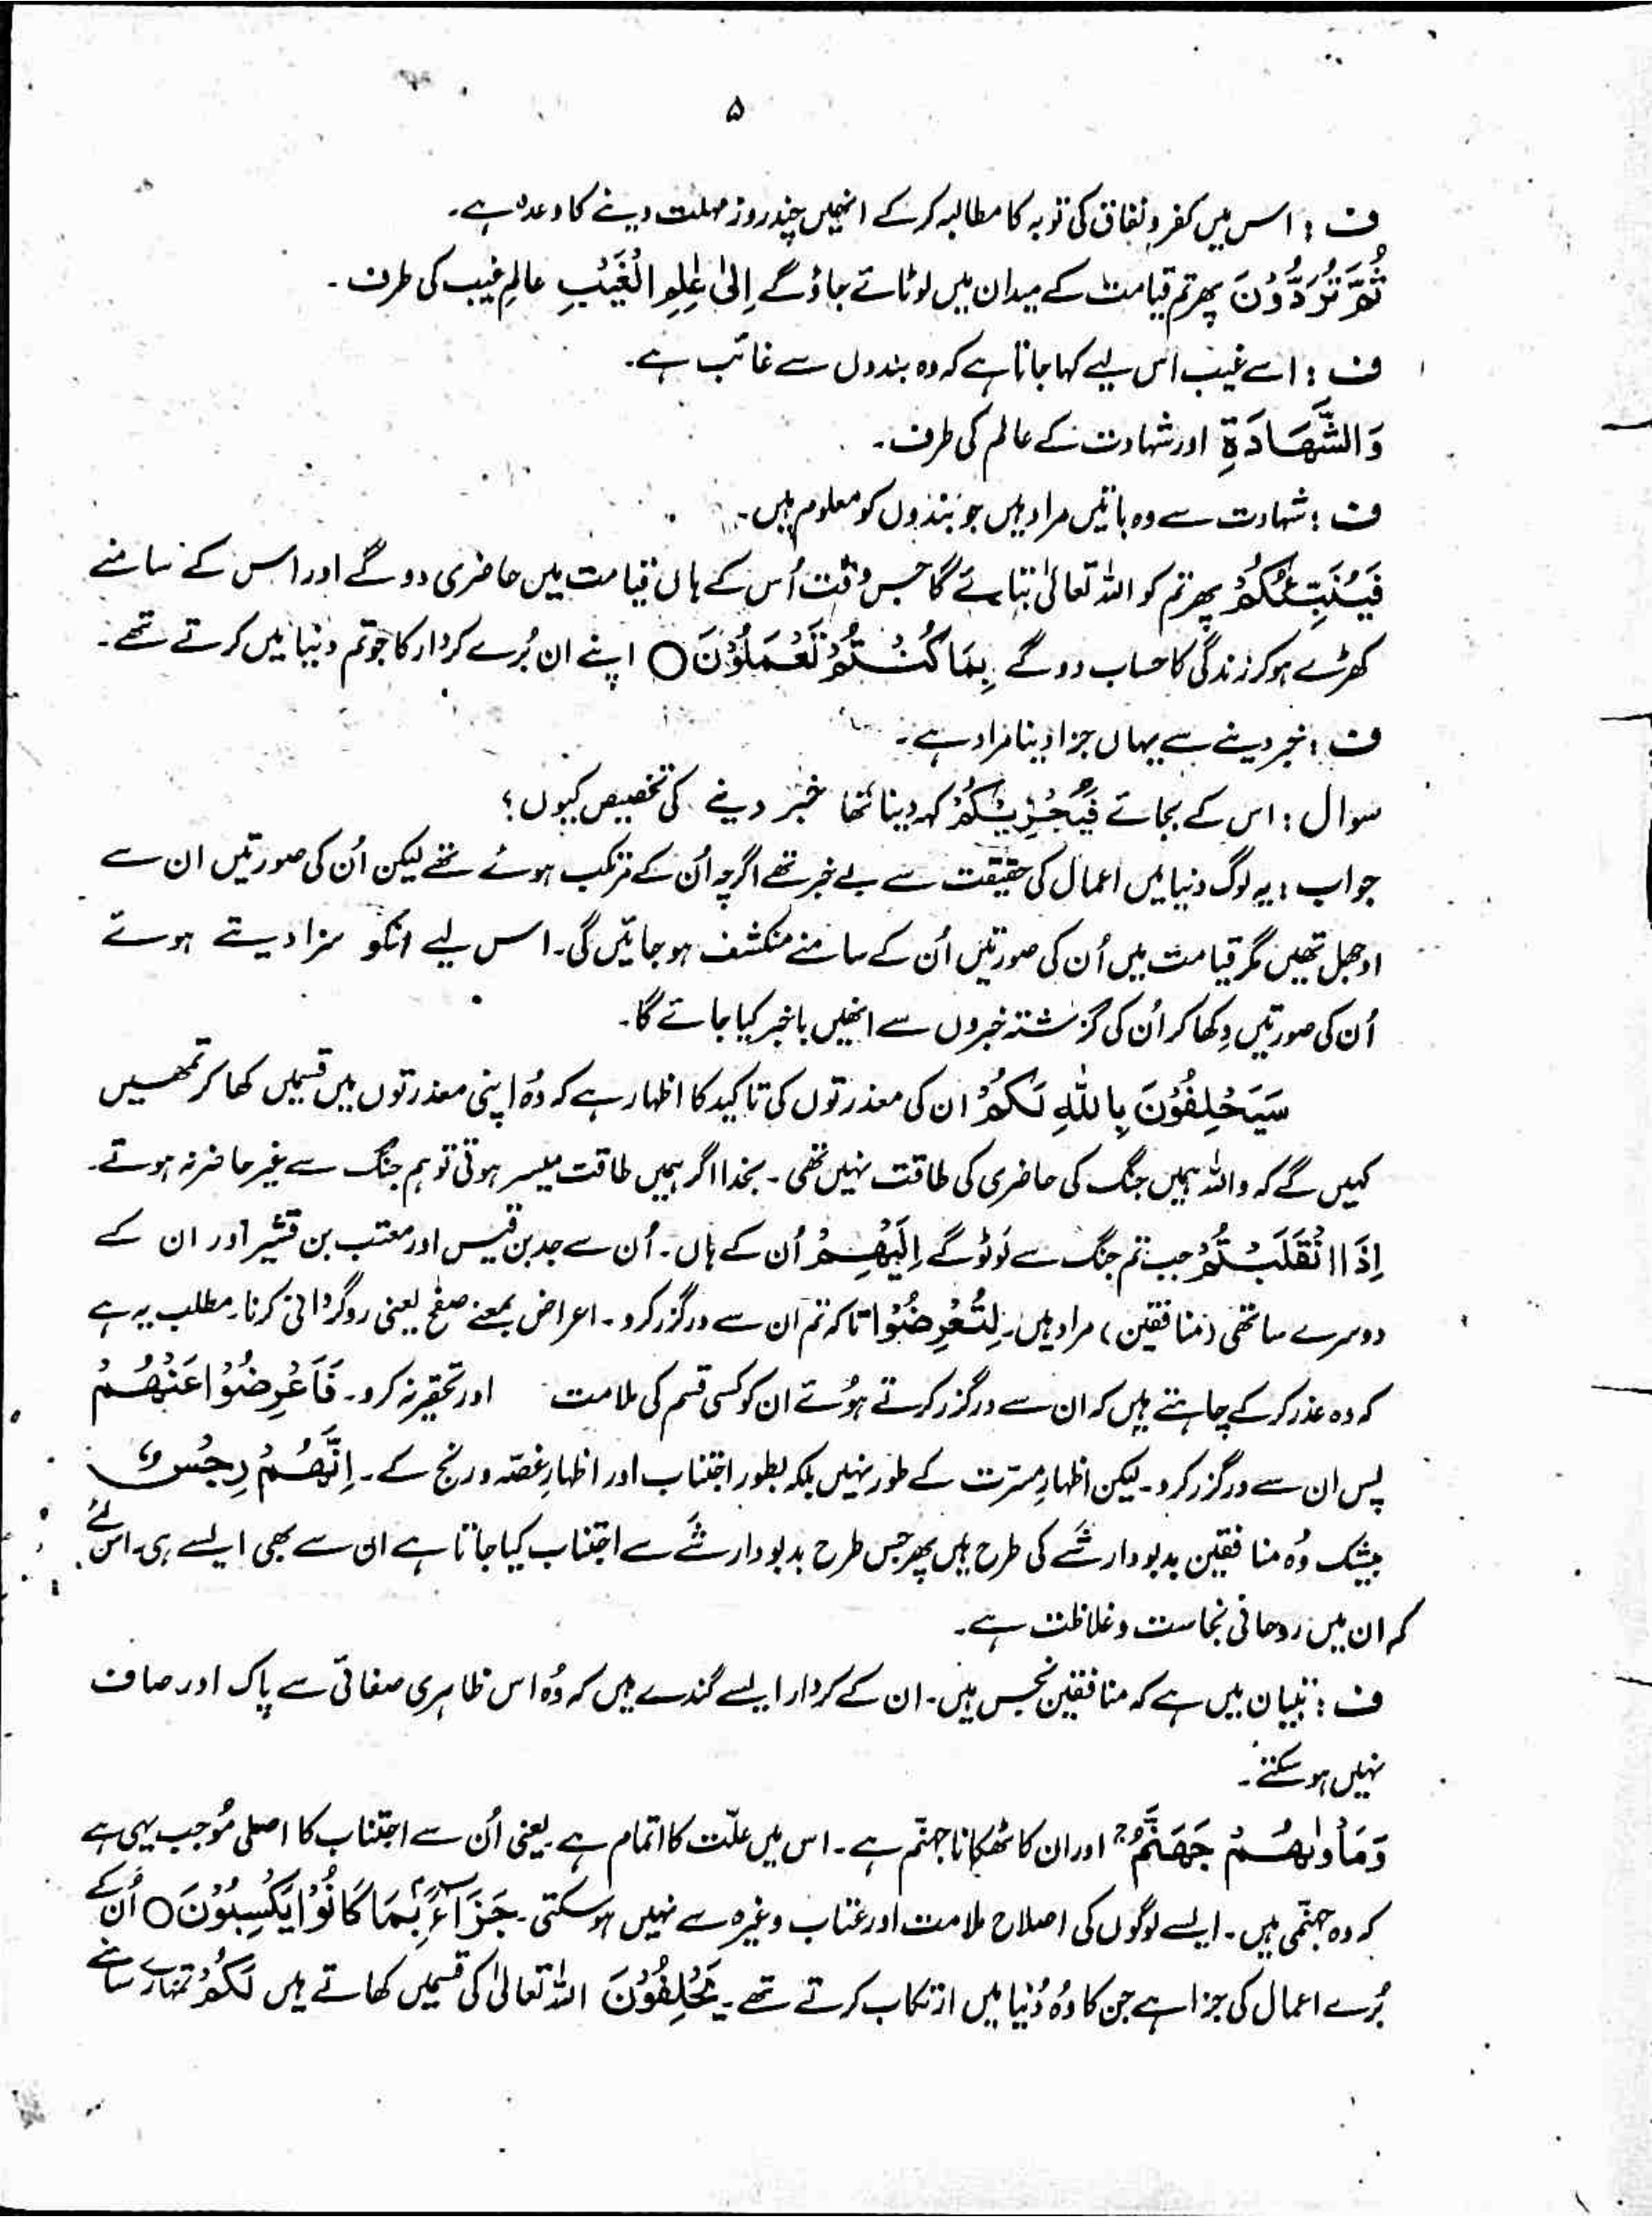 ۵
ف : اس میں کفر و نفاق کی توبہ کا مطالبہ کرکے انھیں چند روز مہلت دینے کا وعدہ ہے۔
ثُمَّ تُرَدُّوْنَ پھر تم قیامت کے میدان میں لوٹائے جاؤ گے اِلیٰ عٰلِمِ الْغَیْبِ عالمِ غیب کی طرف ۔
ف : اسے غیب اس لیے کہا جاتا ہے کہ وہ بندوں سے غائب ہے۔
وَالشَّھَادَۃِ اور شہادت کے عالم کی طرف۔
ف : شہادت سے وہ باتیں مراد ہیں جو بندوں کو معلوم ہیں۔
فَیُنَبِّئُکُمْ پھر تم کو اللہ تعالیٰ بتائے گا جس وقت اُس کے ہاں قیامت میں حاضری دو گے اور اس کے سامنے
کھڑے ہو کر زندگی کا حساب دو گے بِمَا کُنْتُمْ تَعْمَلُوْنَ ○ اپنے ان بُرے کردار کا جو تم دنیا میں کرتے تھے۔
ف : خبر دینے سے یہاں جزا دینا مراد ہے۔
سوال : اس کے بجائے فَیُجْزِیْکُمْ کہہ دینا تھا خبر دینے کی تخصیص کیوں؟
جواب : یہ لوگ دنیا میں اعمال کی حقیقت سے بے خبر تھے اگرچہ اُن کے مرتکب ہوئے تھے لیکن اُن کی صورتیں ان سے
اوجھل تھیں مگر قیامت میں اُن کی صورتیں اُن کے سامنے منکشف ہو جائیں گی۔ اس لیے انکو سزا دیتے ہوئے
اُن کی صورتیں دِکھا کر اُن کی گزشتہ خبروں سے انھیں باخبر کیا جائے گا۔
سَیَحْلِفُوْنَ بِاللّٰہِ لَکُمْ ان کی معذرتوں کی تاکید کا اظہار ہے کہ وُہ اپنی معذرتوں میں قسمیں کھا کر تمھیں
کہیں گے کہ واللہ ہمیں جنگ کی حاضری کی طاقت نہیں تھی ۔ بخدا اگر ہمیں طاقت میسر ہوتی تو ہم جنگ سے غیر حاضر نہ ہوتے۔
اِذَا انْقَلَبْتُمْ جب تم جنگ سے لَوٹو گے اِلَیْھِمْ اُن کے ہاں۔ اُن سے جد بن قیس اور معتب بن قشیر اور ان کے
دوسرے ساتھی (منافقین) مراد ہیں۔ لِتُعْرِضُوْا تاکہ تم ان سے درگزر کرو ۔ اعراض بمعنے صفح یعنی روگردانی کرنا۔ مطلب یہ ہے
کہ وہ عذر کرکے چاہتے ہیں کہ ان سے درگزر کرتے ہُوئے ان کو کسی قسم کی ملامت اور تحقیر نہ کرو۔ فَاَعْرِضُوْا عَنْھُمْ
پس ان سے درگزر کرو۔ لیکن اظہارِ مسرّت کے طور نہیں بلکہ بطور اجتناب اور اظہارِ غصّہ و رنج کے۔ اِنَّھُمْ رِجْسٌ
بیشک وُہ منافقین بدبودار شَے کی طرح ہیں پھر جس طرح بدبودار شَے سے اجتناب کیا جاتا ہے ان سے بھی ایسے ہی۔ اس لئے
کہ ان میں روحانی نجاست و غلاظت ہے۔
ف : تبیان میں ہے کہ منافقین نجس ہیں۔ ان کے کردار ایسے گندے ہیں کہ وُہ اس ظاہری صفائی سے پاک اور صاف
نہیں ہو سکتے۔
وَمَأْوٰىھُمْ جَھَنَّمُ ج اور ان کا ٹھکانا جہنّم ہے۔ اس میں علّت کا اتمام ہے۔ یعنی اُن سے اجتناب کا اصلی مُوجب یہی ہے
کہ وہ جہنّمی ہیں۔ ایسے لوگوں کی اصلاح ملامت اور عتاب وغیرہ سے نہیں ہوسکتی۔ جَزَآءًۢ بِمَا کَانُوْا یَکْسِبُوْنَ ○ اُن کے
بُرے اعمال کی جزا ہے جن کا وُہ دُنیا میں ارتکاب کرتے تھے۔ یَحْلِفُوْنَ اللہ تعالیٰ کی قسمیں کھاتے ہیں لَکُمْ تمہارے سامنے